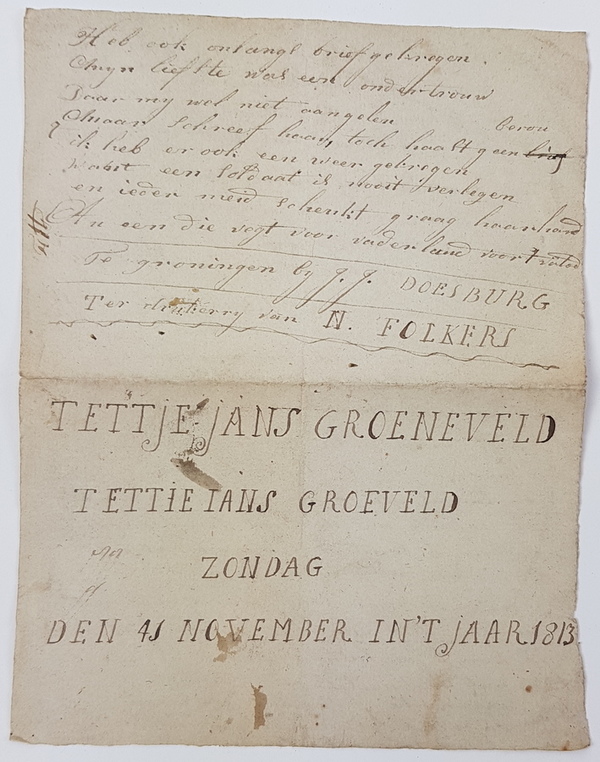 Heb ook onlangs brief gekregen.
Myn liefste was een ondertrouw
Daar my wel niet aangelen
berou
Maar schreef haar, toch haalt geen
ik heb er ook een weer gekregen
want een Soldaat is nooit verlegen
en ieder meid schenkt graag haar hand
An een die vegt voor vaderland
Te groningen by J. J. DOESBURG
Ter drukerry van N. FOLKERS
TETTJE JANS GROENEVELD
TETTIE IANS GROEVELD
ZONDAG
DEN 41 NOVEMBER IN'T JAAR 1813